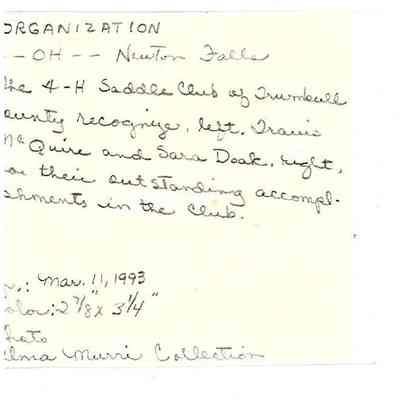 ORGANIZATION
-- OH -- Newton Falls
the 4-H Saddle Club of Trumbull
ounty recognize, left, Travis
McQuire and Sara Doak, right,
or their outstanding accompl-
shments in the club.
r.: Mar. 11, 1993
olor: 2 7/8" x 3 1/4"
hoto
elma Murri Collection